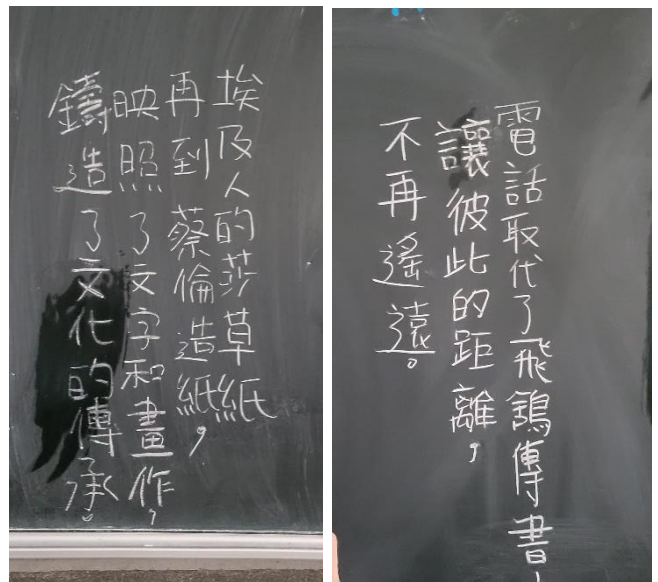 埃及人的莎草紙
再到蔡倫造紙，
映照了文字和畫作，
鑄造了文化的傳承。
電話取代了飛鴿傳書，
讓彼此的距離，
不再遙遠。